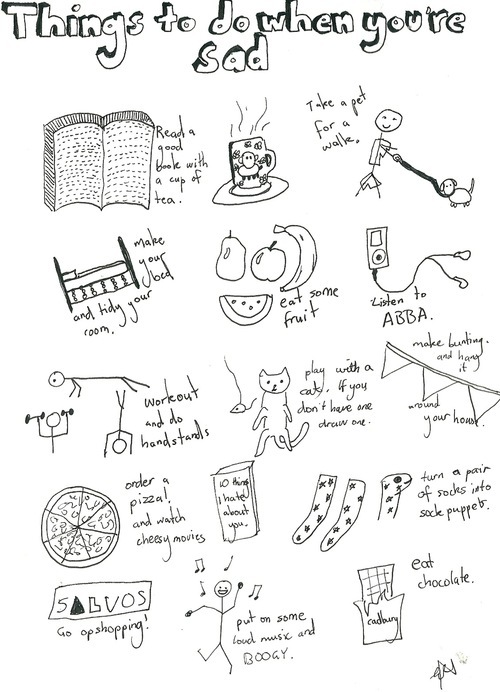 Things to do when you're
sad
Read a
good
book with
a cup of
tea.
Take a pet
for a
walk.
make
your
bed
and tidy your
room.
eat some
fruit
Listen to
ABBA.
workout
and do
handstands
play with a
cat. If you
don't have one
draw one.
make bunting.
and hang
it
around
your house.
order a
pizza!
and watch
cheesy movies
10 things
I hate
about
you.
turn a pair
of socks into
sock puppets.
SALVOS
Go opshopping!
put on some
loud music and
BOOGY.
eat
chocolate.
cadbury